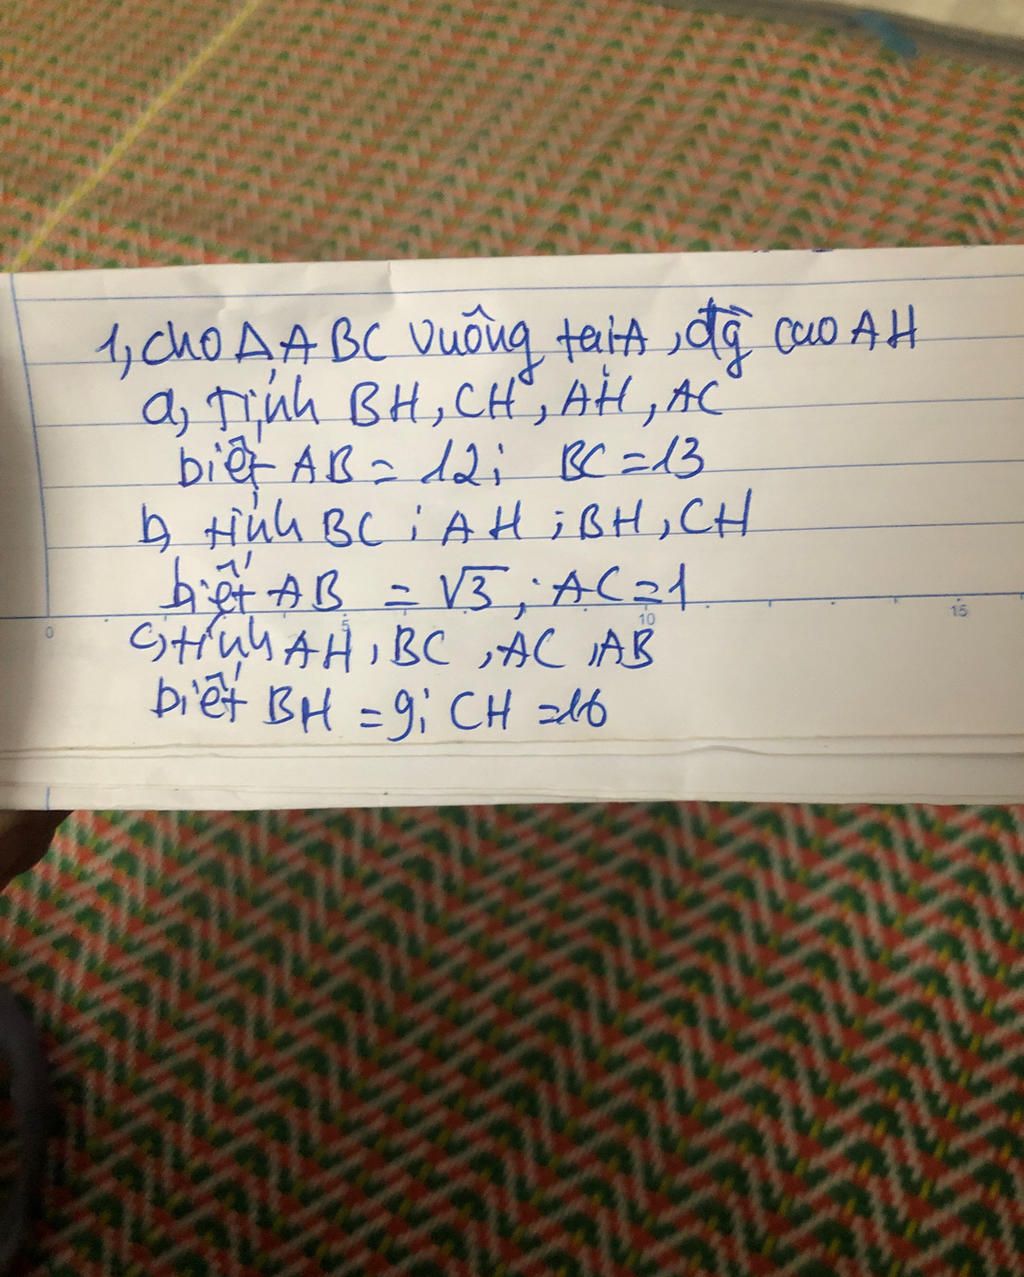 1, Cho ΔABC vuông tại A, đg cao AH
a, Tính BH, CH, AH, AC
biết AB = 12; BC = 13
b, tính BC; AH; BH, CH
biết AB = √3; AC = 1
0 5 10 15
c, tính AH, BC, AC, AB
biết BH = 9; CH = 16